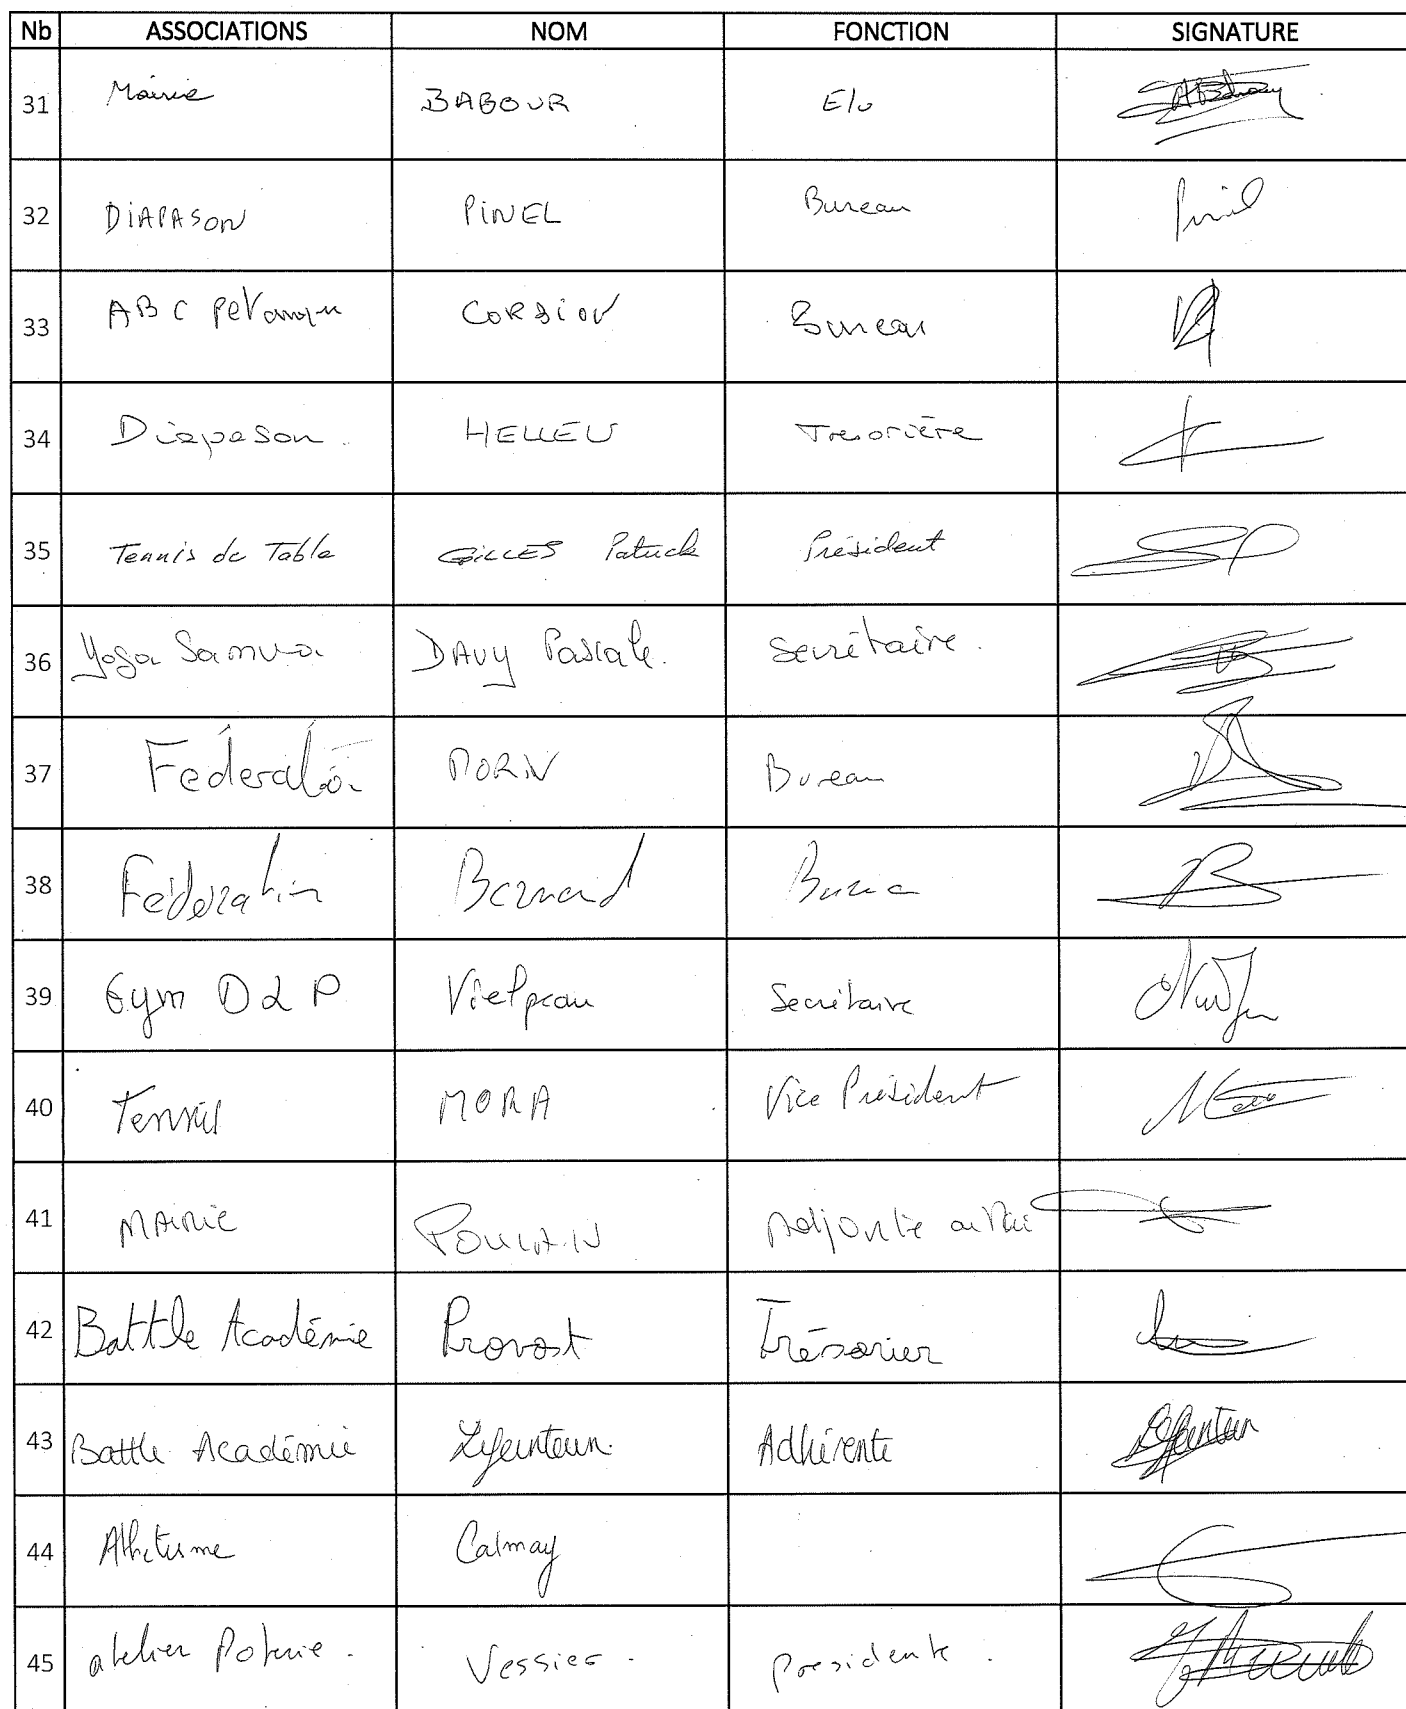 Nb ASSOCIATIONS NOM FONCTION SIGNATURE
31 Mairie BABOUR Elu
32 DIAPASON PINEL Bureau
33 ABC petanque CORDIOU Bureau
34 Diapason. HELLEU Tresorière
35 Tennis de Table GILLES Patrick Président
36 Yoga Samvoa DAVY Pascale. Secrétaire.
37 Fédération MORIN Bureau
38 Fédération Bernard Bureau
39 Gym D2P Vielpeau Secrétaire
40 Tennis MORA Vice Président
41 MAIRIE POULAIN Adjointe
42 Battle Académie Provost Trésorier
43 Battle Académie Lefeunteun. Adhérente
44 Athletisme Calmay
45 atelier Poterie. Vessier. presidente.